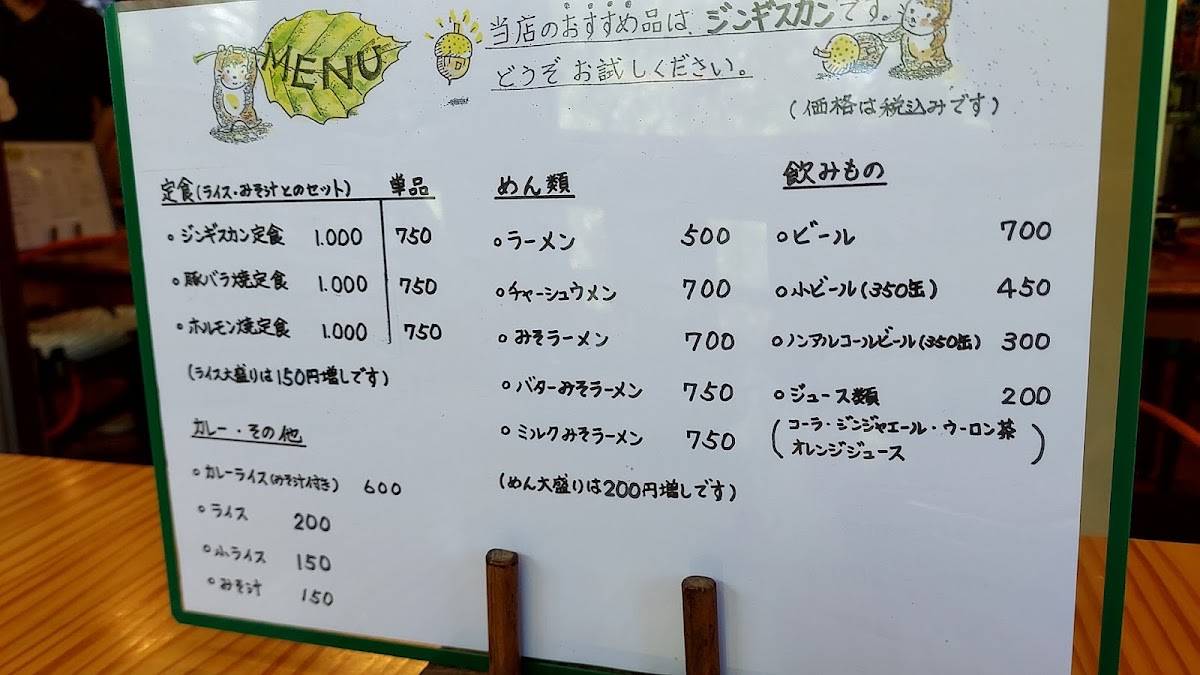 MENU
当店のおすすめ品は、ジンギスカンです。
どうぞ お試しください。
(価格は税込みです)
定食(ライス・みそ汁とのセット) 単品
ジンギスカン定食 1.000 750
豚バラ焼定食 1.000 750
ホルモン焼定食 1.000 750
(ライス大盛りは150円増しです)
カレー・その他
カレーライス(みそ汁付き) 600
ライス 200
小ライス 150
みそ汁 150
めん類
ラーメン 500
チャーシュウメン 700
みそラーメン 700
バターみそラーメン 750
ミルクみそラーメン 750
(めん大盛りは200円増しです)
飲みもの
ビール 700
小ビール(350缶) 450
ノンアルコールビール(350缶) 300
ジュース類 200
(コーラ・ジンジャエール・ウーロン茶
オレンジジュース)